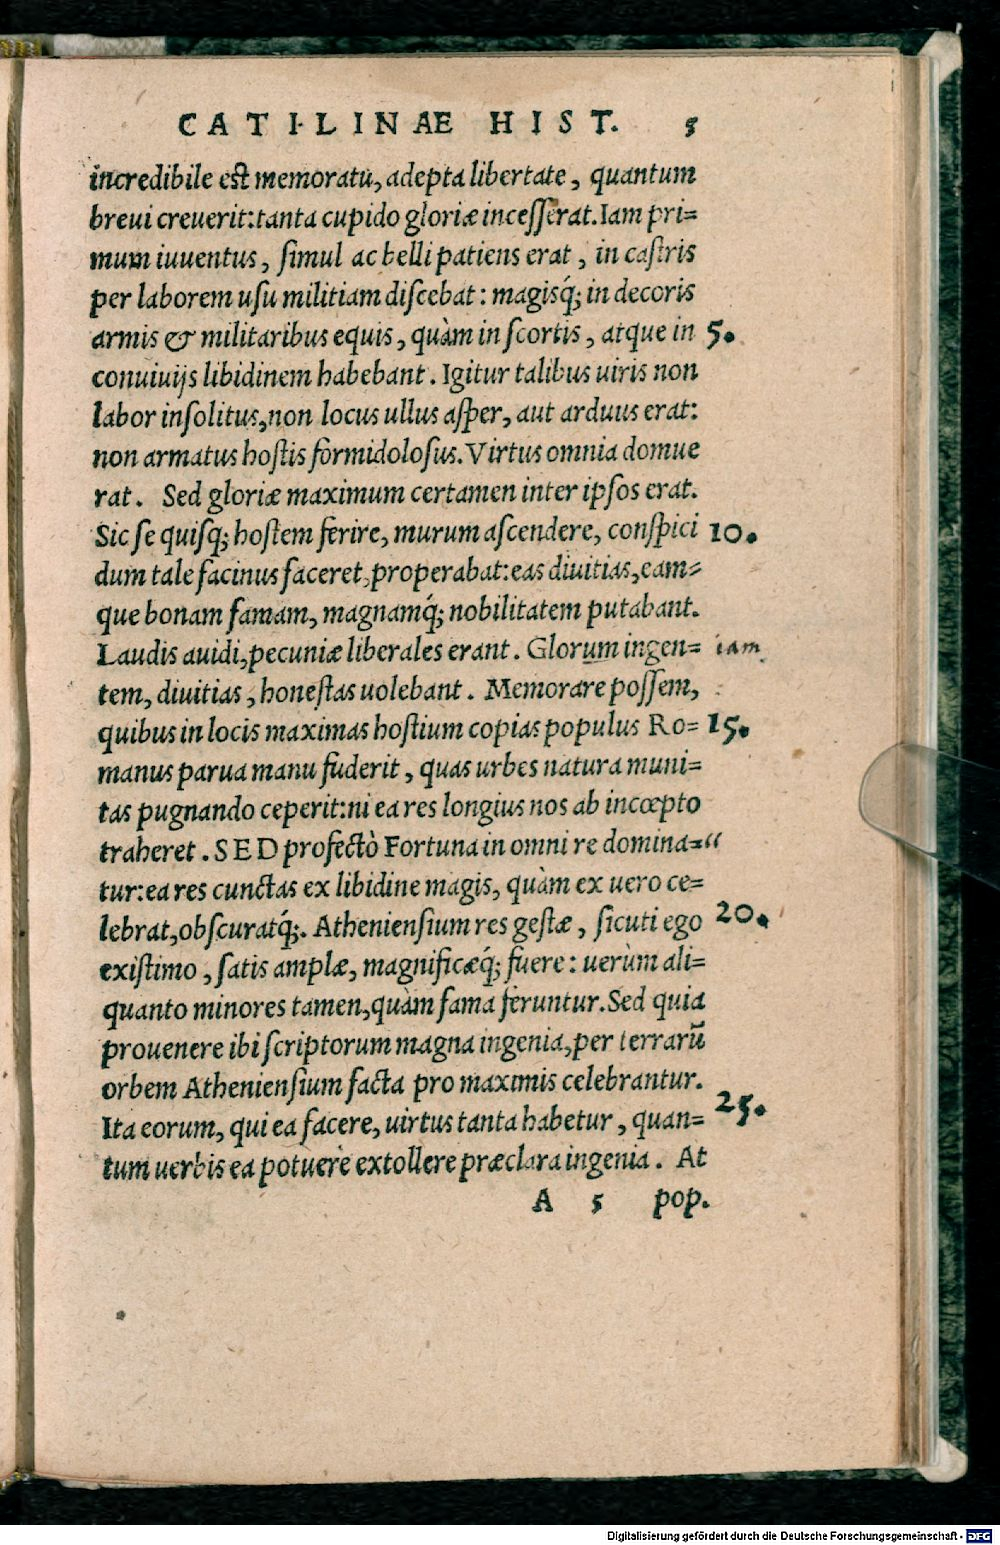 CATILINAE HIST. 5
incredibile est memoratu, adepta libertate, quantum
breui creuerit: tanta cupido gloriæ incesserat. Iam pri=
mum iuuentus, simul ac belli patiens erat, in castris
per laborem usu militiam discebat: magisq́; in decoris
armis & militaribus equis, quàm in scortis, atque in 5.
conuiuijs libidinem habebant. Igitur talibus uiris non
labor insolitus, non locus ullus asper, aut arduus erat:
non armatus hostis formidolosus. Virtus omnia domue
rat. Sed gloriæ maximum certamen inter ipsos erat.
Sic se quisq; hostem ferire, murum ascendere, conspici 10.
dum tale facinus faceret, properabat: eas diuitias, eam=
que bonam famam, magnamq́; nobilitatem putabant.
Laudis auidi, pecuniæ liberales erant. Glorum ingen= iam
tem, diuitias, honestas uolebant. Memorare possem,
quibus in locis maximas hostium copias populus Ro= 15.
manus parua manu fuderit, quas urbes natura muni=
tas pugnando ceperit: ni ea res longius nos ab incœpto
traheret. SED profectò Fortuna in omni re domina= “
tur: ea res cunctas ex libidine magis, quàm ex uero ce=
lebrat, obscuratq́;. Atheniensium res gestæ, sicuti ego 20.
existimo, satis amplæ, magnificæq́; fuere: uerùm ali=
quanto minores tamen, quàm fama feruntur. Sed quia
prouenere ibi scriptorum magna ingenia, per terrarū
orbem Atheniensium facta pro maximis celebrantur.
Ita eorum, qui ea facere, uirtus tanta habetur, quan= 25.
tum uerbis ea potuere extollere præclara ingenia. At
A 5 pop.
Digitalisierung gefördert durch die Deutsche Forschungsgemeinschaft - DFG